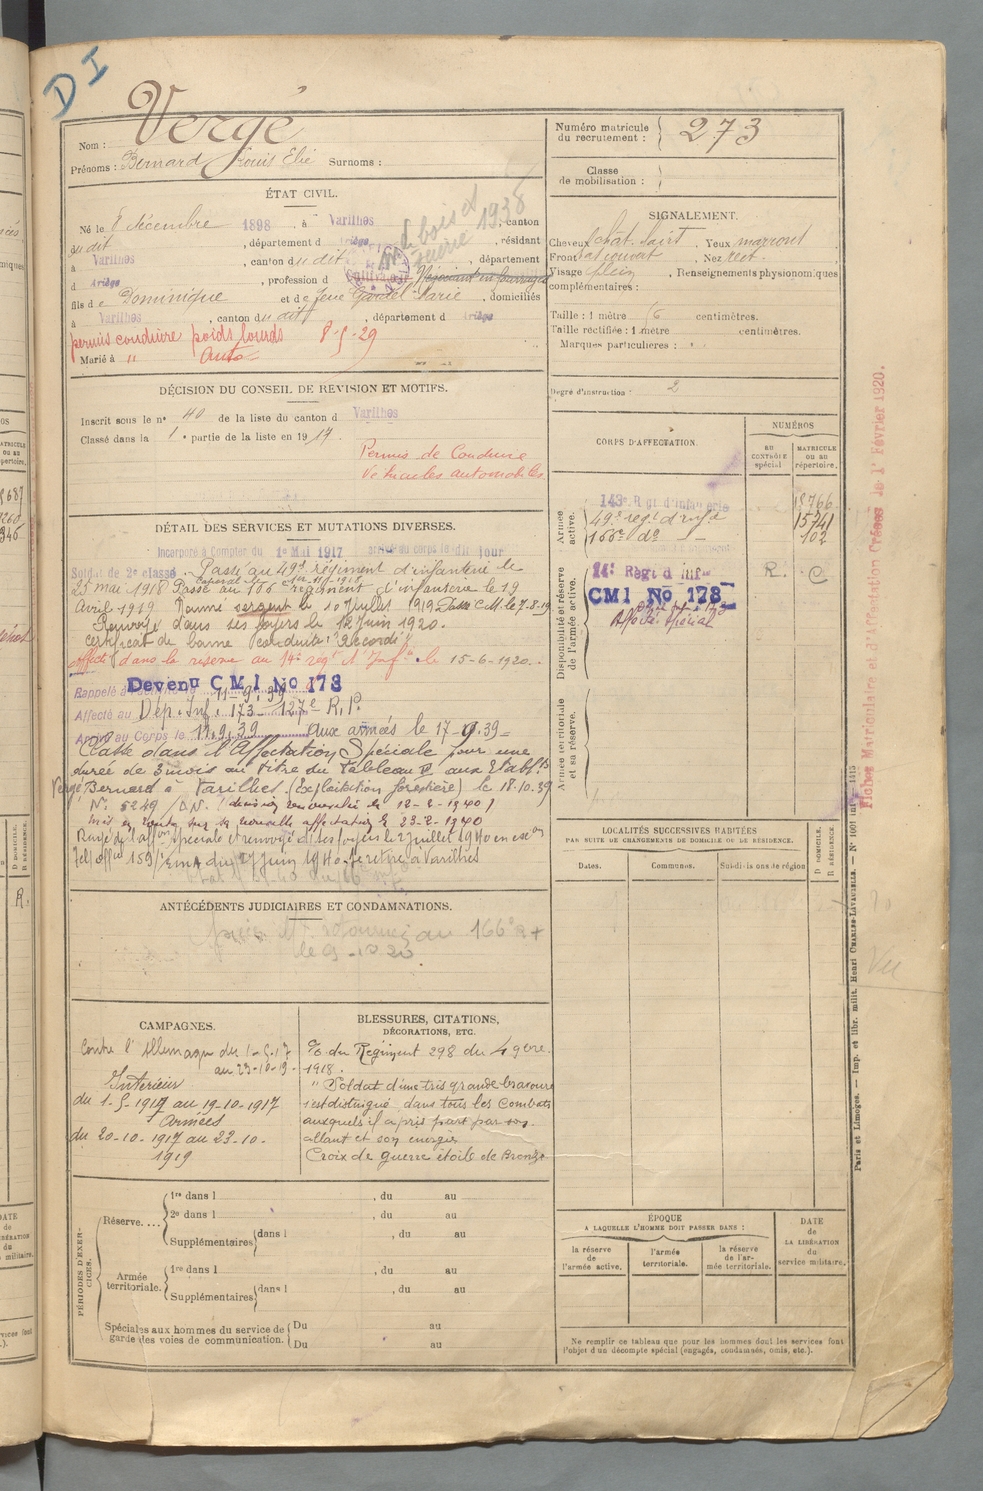 DI
Vergé
Nom :
Prénoms : Bernard Louis Elie Surnoms :
Numéro matricule du recrutement : 273
Classe de mobilisation :
ÉTAT CIVIL.
Né le 8 décembre 1898, à Varilhes, canton
du dit, département d Ariège, résidant
à Varilhes, canton du dit, département
d Ariège, profession d Cultivateur Négociant en fourrages
Md de bois et 1938
fils de Dominique et de Marie, domiciliés
à Varilhes, canton du dit, département d Ariège
permis conduire poids lourds 8-5-29
Marié à " Auto
SIGNALEMENT.
Cheveux chât. Yeux marrons
Front Nez rect.
Visage plein, Renseignements physionomiques
complémentaires :
Taille : 1 mètre 6 centimètres.
Taille rectifiée : 1 mètre centimètres.
Marques particulières :
Degré d'instruction : 2
DÉCISION DU CONSEIL DE REVISION ET MOTIFS.
Inscrit sous le n° 40 de la liste du canton d Varilhes
Classé dans la 1e partie de la liste en 1917.
Permis de Conduire
Vehicules automobiles
CORPS D'AFFECTATION.
NUMÉROS
AU CONTRÔLE spécial
MATRICULE OU AU répertoire.
Armée active.
143e Régt d'Infanterie 18766
49e régt d'infie 15741
166e do 102
Disponibilité et réserve de l'armée active.
14e Régt d'Infie R. C
CMI No 173
Affecté spécial
Armée territoriale et sa réserve.
DÉTAIL DES SERVICES ET MUTATIONS DIVERSES.
Incorporé à Compter du 1er Mai 1917 arrivé au corps le dit jour
Soldat de 2e classe. Passé au 49e régiment d'infanterie le
25 mai 1918 Passé au 166e régiment d'infanterie le 19
Avril 1919 Nommé sergent le 10 Juillet 1919
Renvoyé dans ses foyers le 12 Juin 1920.
Certificat de bonne conduite "Accordé"
affecté dans la réserve au 14e régt d'Infie le 15-6-1920.
Devenu CMI No 173
Rappelé à 11-9-39
Affecté au Dép. Inf. 173 - 127e R.P.
Arrivé au Corps le 11.9.39 Aux armées le 17-9.39-
Passé dans l'Affectation Spéciale pour une
durée de 3 mois au titre du tableau aux Etabts
Vergé Bernard à Varilhes (Exploitation forestière) le 18.10.39
No 5249 /A.N. (décision renouvelée le 12-2-1940)
mis en route sur sa nouvelle affectation le 23-2-1940
Rayé de l'affon spéciale et renvoyé ds ses foyers le 2 Juillet 1940 en exon
Tel. offiel 159/ Ema du 27 Juin 1940. se retire à Varilhes
ANTÉCÉDENTS JUDICIAIRES ET CONDAMNATIONS.
au 166e
CAMPAGNES.
Contre l'Allemagne du 1-5-17
au 23-10-19.
Intérieur
du 1-5-1917 au 19-10-1917
Armées
du 20-10-1917 au 23-10-
1919
BLESSURES, CITATIONS,
DÉCORATIONS, ETC.
C/o du Régiment 298 du 4 9bre
1918.
" Soldat d'une très grande bravoure
s'est distingué dans tous les combats
auxquels il a pris part par son
allant et son energie
Croix de guerre étoile de Bronze
LOCALITÉS SUCCESSIVES HABITÉES
PAR SUITE DE CHANGEMENTS DE DOMICILE OU DE RÉSIDENCE.
Dates. Communes. Subdivisions de région
D DOMICILE.
R RÉSIDENCE.
PÉRIODES D'EXERCICES.
Réserve....
1re dans l , du au
2e dans l , du au
Supplémentaires dans l , du au
Armée territoriale.
1re dans l , du au
Supplémentaires dans l , du au
Spéciales aux hommes du service de garde des voies de communication.
Du au
Du au
ÉPOQUE
A LAQUELLE L'HOMME DOIT PASSER DANS :
la réserve de l'armée active.
l'armée territoriale.
la réserve de l'armée territoriale.
DATE de LA LIBÉRATION du service militaire.
Ne remplir ce tableau que pour les hommes dont les services font
l'objet d'un décompte spécial (engagés, condamnés, omis, etc.).
Fiches Matriculaire et d'Affectation Créées le 1er Février 1920.
Paris et Limoges. — Imp. et libr. milit. Henri CHARLES-LAVAUZELLE. —
Vu
R.